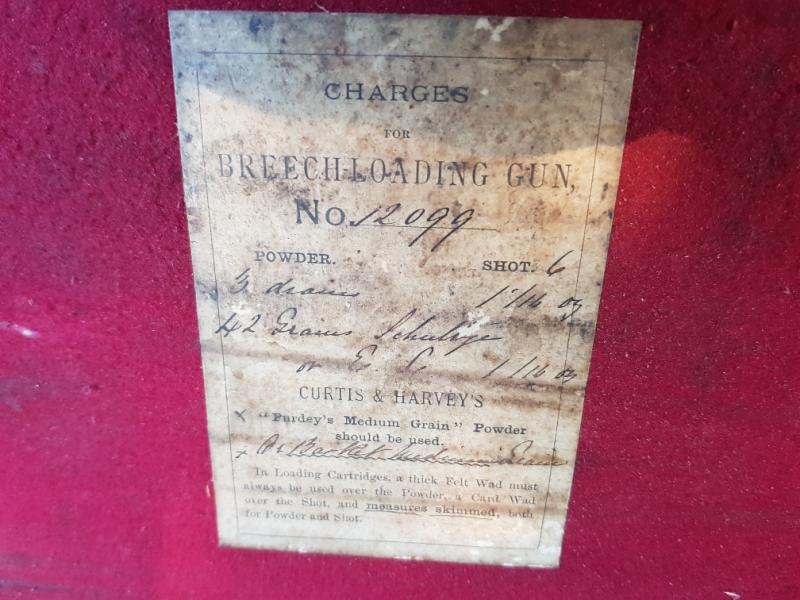 CHARGES
FOR
BREECH-LOADING GUN,
No. 12099
POWDER. SHOT. 6
3 drams 1 1/16 oz
42 Grains Schultze
or E. C. 1 1/16 oz
CURTIS & HARVEY'S
x "Purdey's Medium Grain" Powder
should be used.
x Or Basket Medium Grain
In Loading Cartridges, a thick Felt Wad must
always be used over the Powder, a Card Wad
over the Shot, and measures skimmed, both
for Powder and Shot.